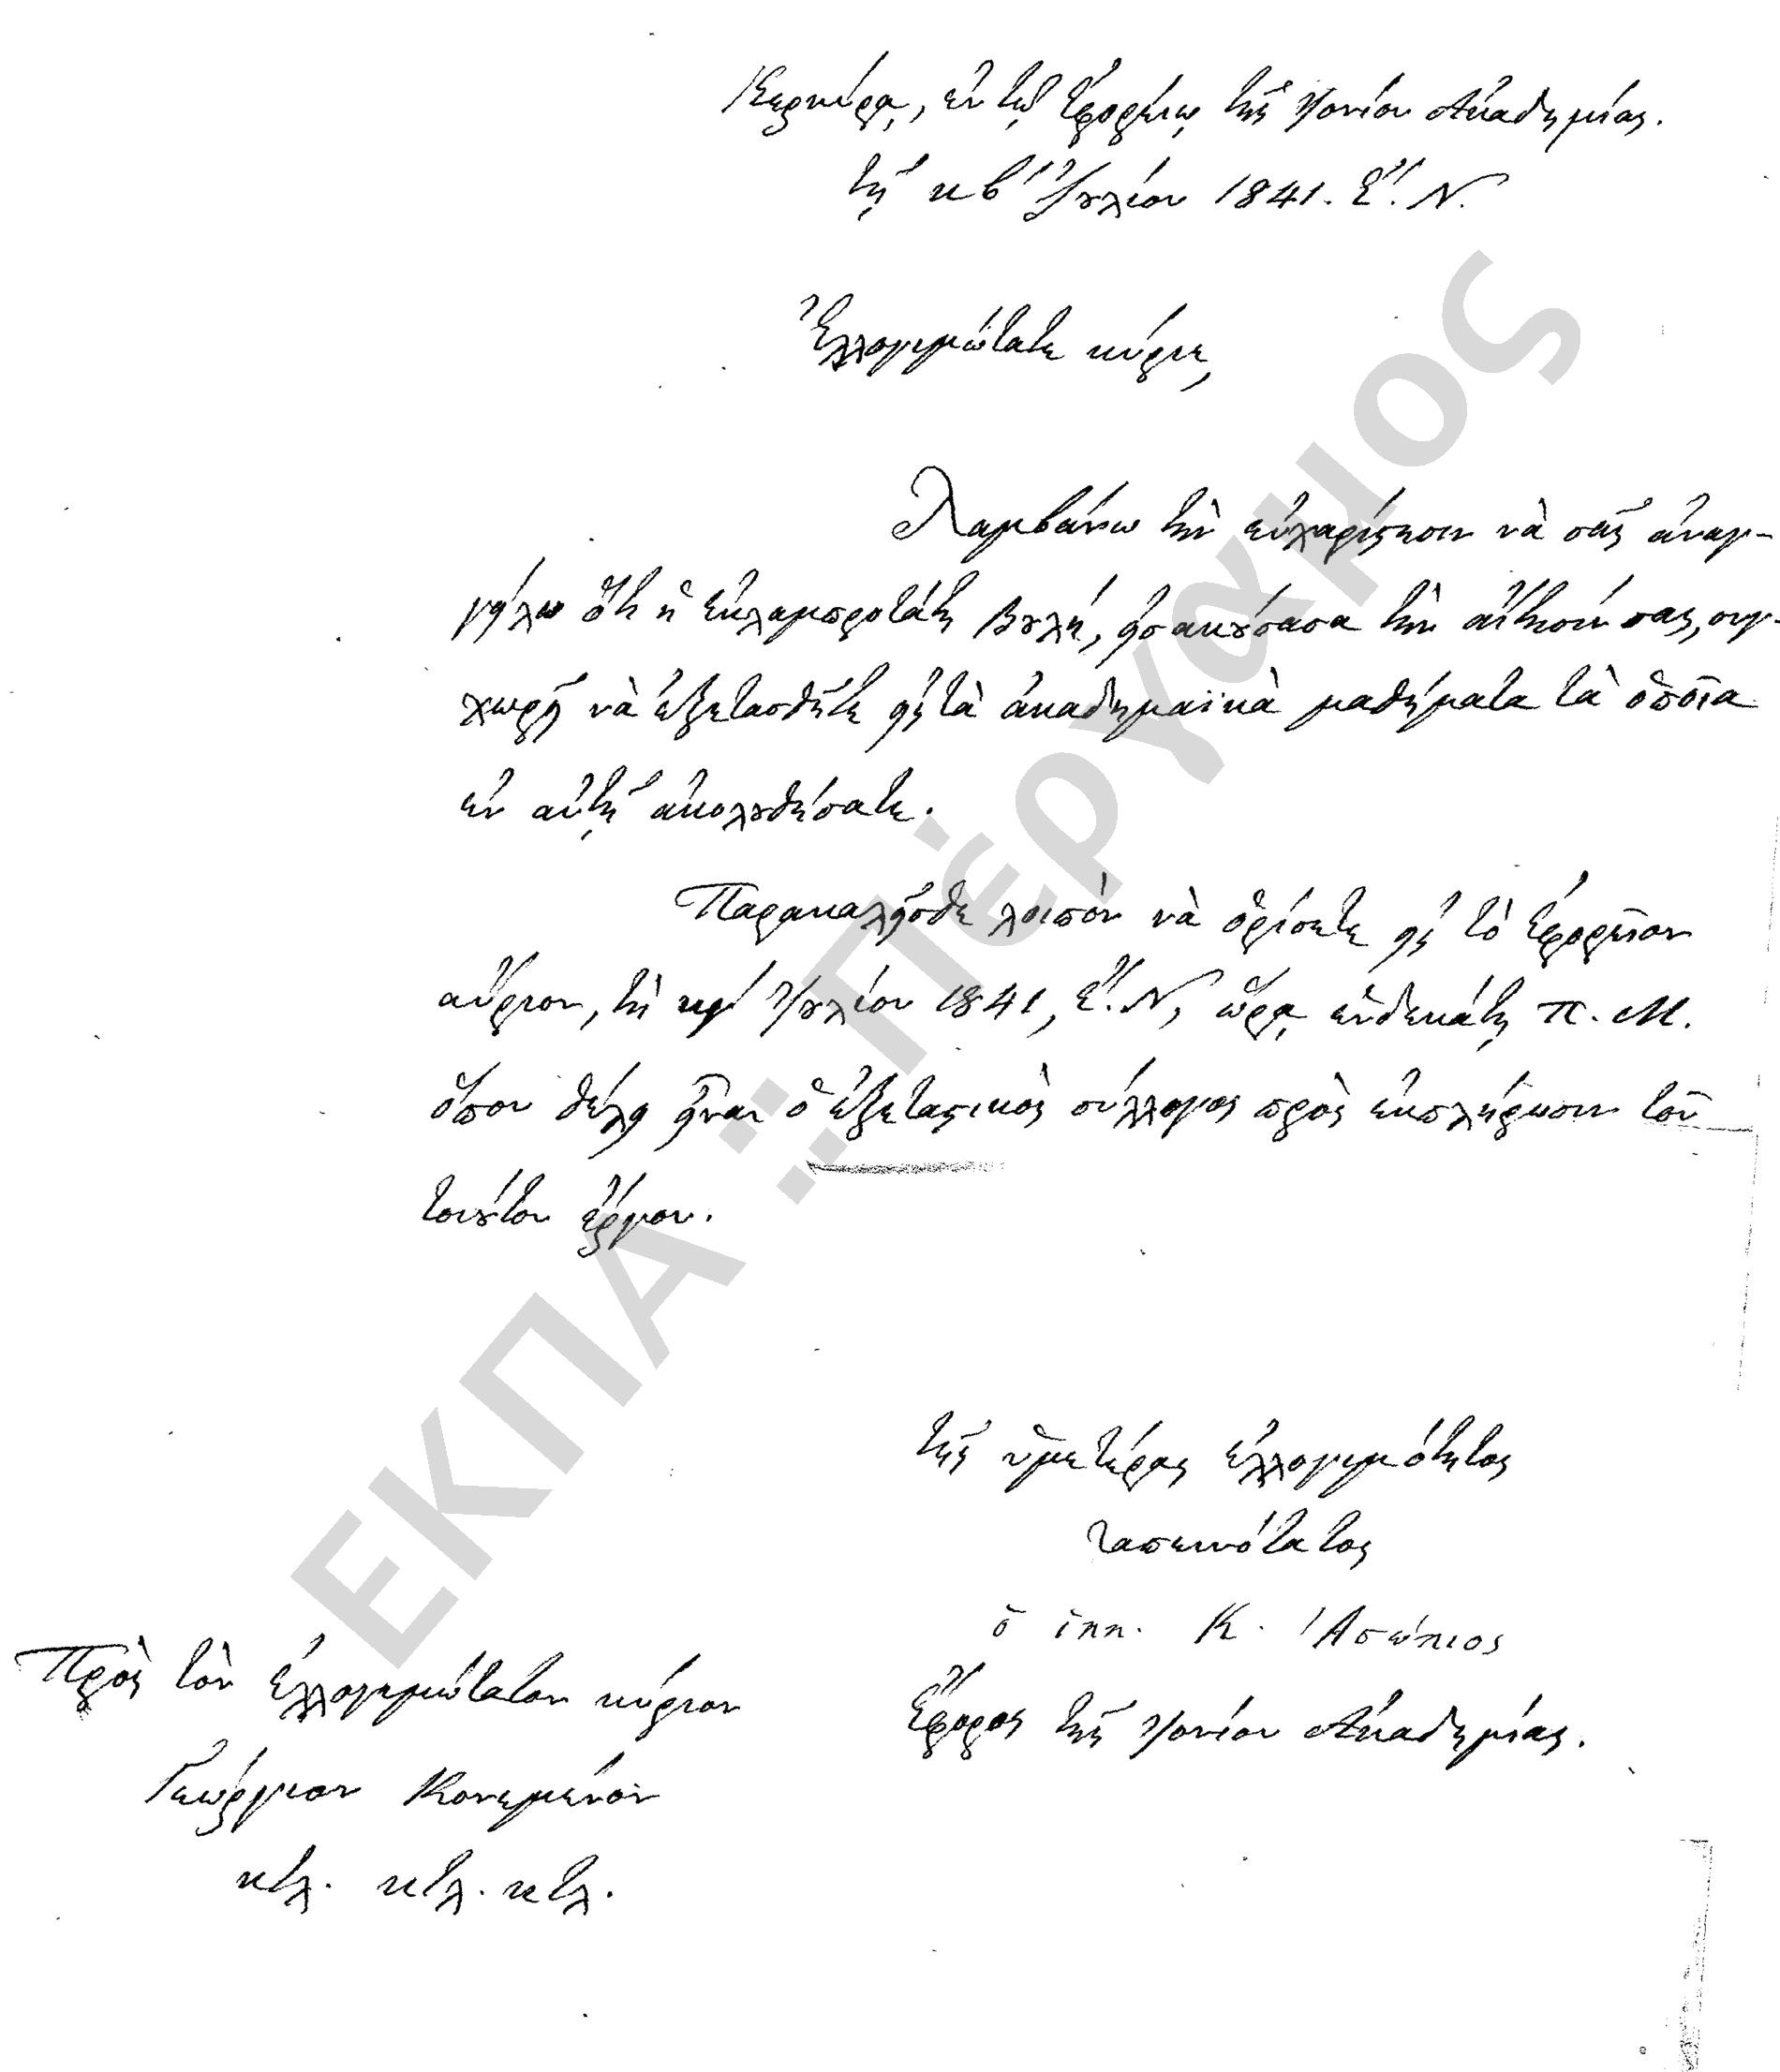 Κερκύρα, ἐν τῷ Ἐφορείῳ τῆς Ἰονίου Ἀκαδημίας.
τῇ κβ΄ Ἰουλίου 1841. Ἔ. Ν.
Ἐλλογιμώτατε κύριε,
Λαμβάνω τὴν εὐχαρίστησιν νὰ σᾶς ἀναγ-
γείλω ὅτι ἡ ἐκλαμπροτάτη Βουλή, εἰσακούσασα τὴν αἴτησίν σας, συγ-
χωρεῖ νὰ ἐξετασθῆτε εἰς τὰ ἀκαδημαϊκὰ μαθήματα τὰ ὁποῖα
ἐν αὐτῇ ἀκολουθήσατε.
Παρακαλεῖσθε λοιπὸν νὰ ὁρίσετε εἰς τὸ Ἐφορεῖον
αὔριον, τῇ κγ΄ Ἰουλίου 1841, Ἔ. Ν, ὥρᾳ ἑνδεκάτῃ π. Μ.
ὅπου θέλει εἶναι ὁ ἐξεταστικὸς σύλλογος πρὸς ἐκπλήρωσιν τοῦ
τοιούτου ἔργου.
τῆς ὑμετέρας ἐλλογιμότητος
ταπεινότατος
ὁ ἱππ. Κ. Ἀσώπιος
Ἔφορος τῆς Ἰονίου Ἀκαδημίας.
Πρὸς τὸν ἐλλογιμώτατον κύριον
Γεώργιον Κονεμένον
κτλ. κτλ. κτλ.
ΕΚΠΑ :: Πέργαμος